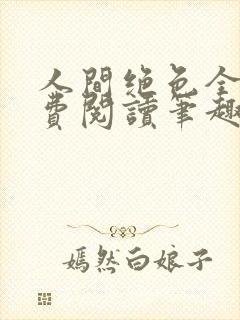 人間絕色全
費閱讀筆趣
嫣然白娘子